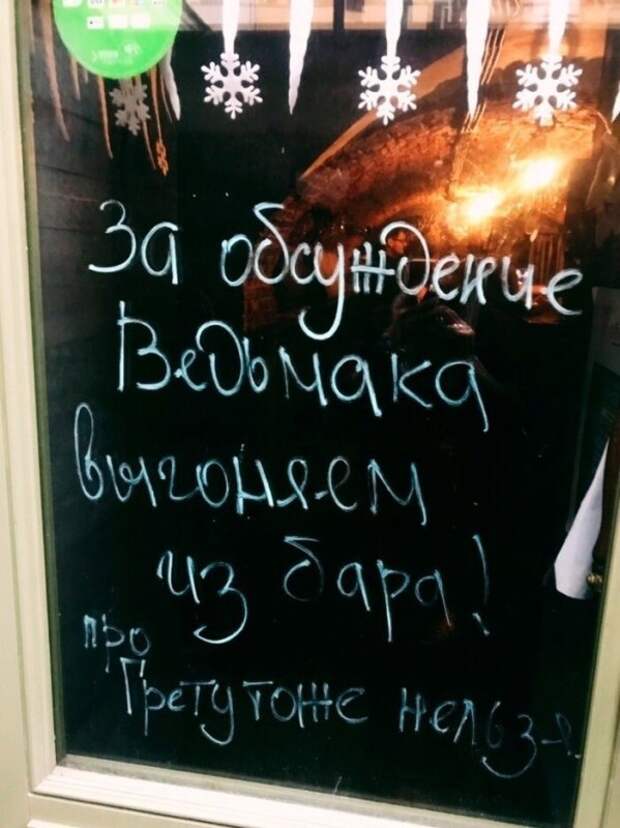 За обсуждение
Ведьмака
выгоняем
из бара!
про
Грету тоже нельзя